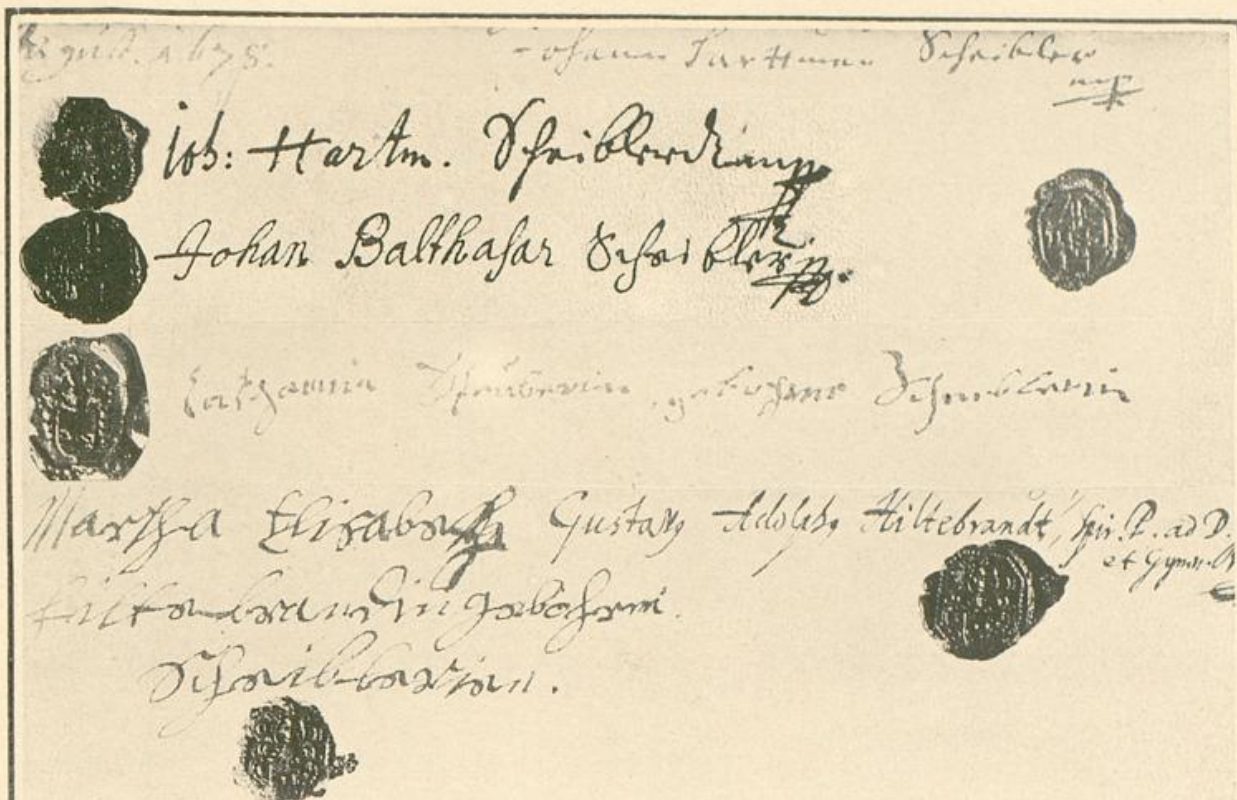 1678. Johann Hartman Scheibler
mp
Joh: Hartm. Scheibler
Johan Balthasar Scheibler
Catharina gebohrne Scheiblerin
Martha Elisabeth Gustav Adolph Hiltebrandt, P. ad D.
et Gymn.
Hiltebrandin gebohrne
Scheiblerinn.